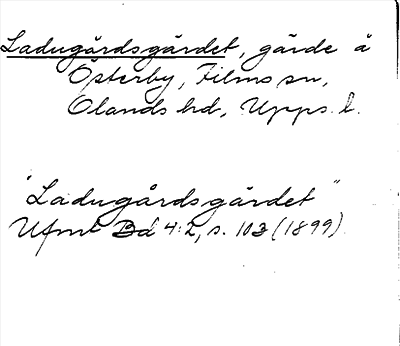 Ladugårdsgärdet, gärde å
Österby, Films sn,
Olands hd, Upps. l.
"Ladugårdsgärdet"
Ufmt Bd 4:2, s. 103 (1899).